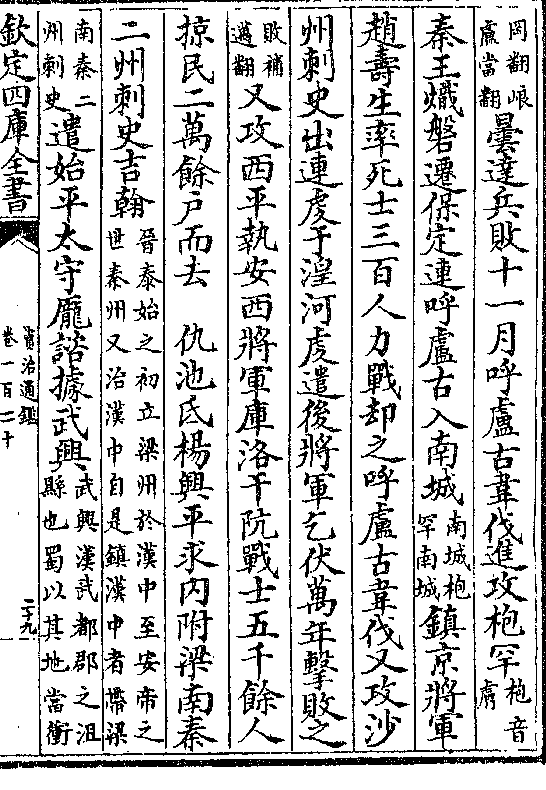 罔翻㟍
盧當翻
曇達兵敗十一月呼盧古韋伐進攻枹罕
枹音
膚
秦王熾磐遷保定連呼盧古入南城
南城枹
罕南城
鎮京將軍
趙壽生率死士三百人力戰却之呼盧古韋伐又攻沙
州刺史出連虔于湟河虔遣後將軍乞伏萬年擊敗之
敗補
邁翻
又攻西平執安西將軍庫洛干阬戰士五千餘人
掠民二萬餘户而去　仇池氐楊興平求内附梁南秦
二州刺史吉翰
晉泰始之初立梁州於漢中至安帝之
世秦州又治漢中自是鎮漢中者帶梁
南秦二
州刺史
遣始平太守龐諮據武興
武興漢武都郡之沮
縣也蜀以其地當衝
欽定四庫全書
資治通鑑
卷一百二十
二九